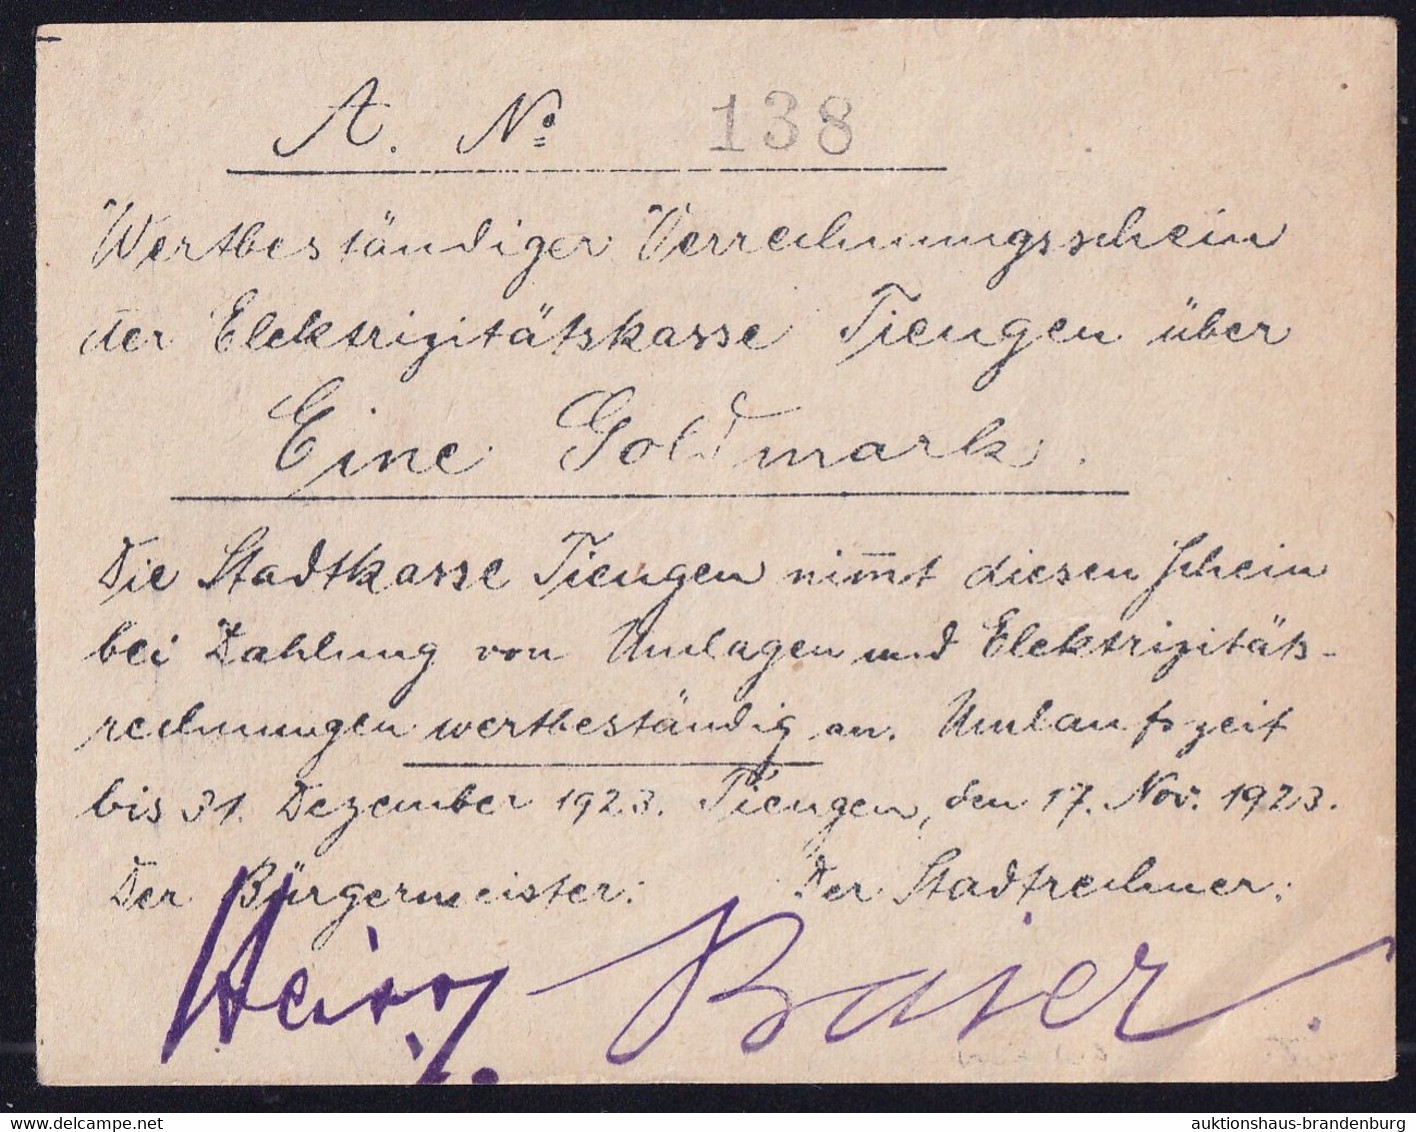 A. No 138
Wertbeständiger Verrechnungsschein
der Elektrizitätskasse Tiengen über
Eine Goldmark.
Die Stadtkasse Tiengen nim̅t diesen Schein
bei Zahlung von Umlagen und Elektrizitäts-
rechnungen wertbeständig an. Umlaufszeit
bis 31. Dezember 1923. Tiengen, den 17. Nov. 1923.
Der Bürgermeister: Der Stadtrechner:
Baier
auktionshaus-brandenburg